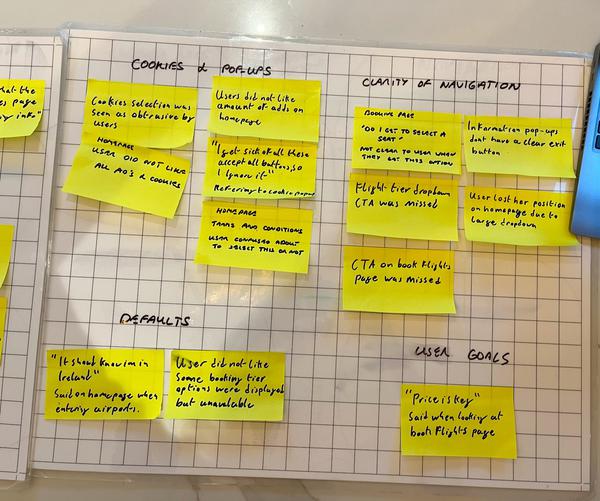 hat the
es page
y info"
COOKIES & POP-UPS
Cookies selection was
seen as obtrusive by
users
HOMEPAGE
USER DID NOT LIKE
ALL AD'S & COOKIES
Users did not like
amount of adds on
homepage
"I get sick of all these
accept all buttons, so
I ignore it"
Refering to cookie popup
HOMEPAGE
TERMS AND CONDITIONS
USER CONFUSED ABOUT
TO SELECT THIS OR NOT
CLARITY OF NAVIGATION
BOOKING PAGE
"DO I GET TO SELECT A
SEAT"
NOT CLEAR TO USER WHEN
THEY GET THIS OPTION
Information pop-ups
dont have a clear exit
button
Flight tier dropdown
CTA was missed
User lost her position
on homepage due to
large dropdown
CTA on book Flights
page was missed
DEFAULTS
"It should know im in
Ireland"
Said on homepage when
entering airports.
User did not like
Some booking tier
options were displayed
but unavailable
USER GOALS
"Price is key"
Said when looking at
book Flights page